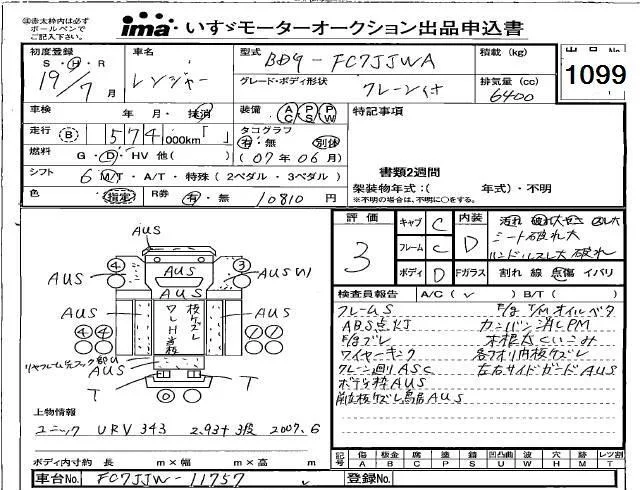 ※赤太枠内は必ず
ボールペンで
ご記入下さい。
ima いすゞモーターオークション出品申込書
初度登録
S・H・R
19/7月
車名
レンジャー
型式
BDG-FC7JJWA
グレード・ボディ形状
クレーン付
積載 (kg)
排気量 (cc)
6400
1099
車検 年・月・抹消
装備 AC PS PW
特記事項
走行 B 574,000km「 」
タコグラフ
有・無 別体
(07年06月)
燃料 G・D・HV 他( )
シフト 6 M/T・A/T・特殊(2ペダル・3ペダル)
書類2週間
架装物年式:( 年式)・不明
※不明の場合は、不明に○をする。
色 指定
R券 有・無 10810円
評価
3
キャブ C
フレーム C
ボディ D
内装 D
シート破れ大
ハンドルスレ大 破れ
Fガラス 割れ 線 点傷 イバリ
検査員報告 A/C(✓) B/T( )
フレームS
ABS点灯
F/gズレ
ワイヤーキンク
クレーン廻りASC
ボデー枠AUS
E/g T/Mオイルベタ
カンバン消しPM
木根太くいこみ
各アオリ内板ケズレ
左右サイドガードAUS
AUS
AUS
4
3
AUS
AUS W1
AUS
AUS
AUS
板ケズレ
WLH当板
4 4
AUS
T
T
0
上物情報
ユニック URV343 2.93t 3段 2007.6
ボディ内寸約 長 m×幅 m×高 m
記号 傷A 板金B 腐C 塗P 錆S 凹凸曲U 波W 穴H 跡M レンズ割T
車台No. FC7JJW-11757
登録No.